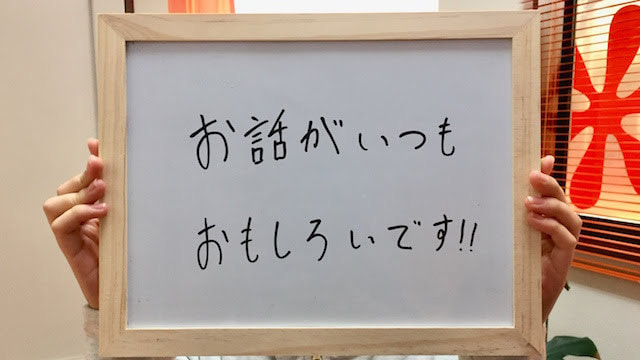 お話がいつも
おもしろいです!!